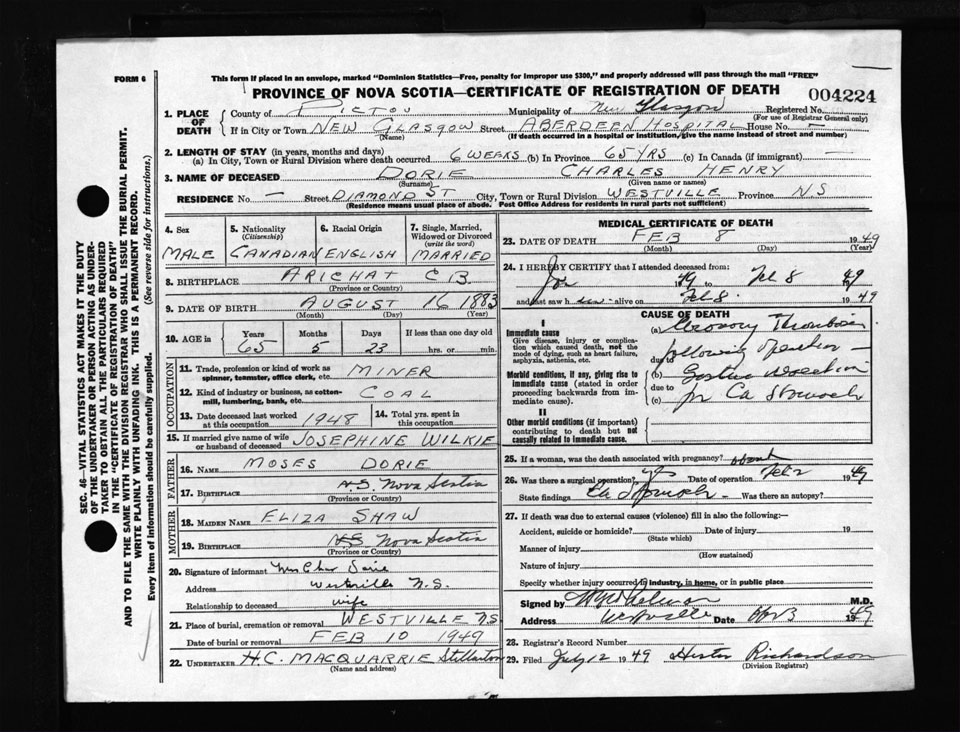 FORM 6
This form if placed in an envelope, marked "Dominion Statistics—Free, penalty for improper use $300," and properly addressed will pass through the mail "FREE"
PROVINCE OF NOVA SCOTIA—CERTIFICATE OF REGISTRATION OF DEATH
004224
1. PLACE OF DEATH
County of PICTOU Municipality of New Glasgow Registered No.
(For use of Registrar General only)
If in City or Town NEW GLASGOW Street ABERDEAN HOSPITAL House No. —
(Name) (If death occurred in a hospital or institution, give the name instead of street and number)
2. LENGTH OF STAY (in years, months and days)
(a) In City, Town or Rural Division where death occurred 6 WEEKS (b) In Province 65 YRS (c) In Canada (if immigrant) —
3. NAME OF DECEASED DORIE CHARLES HENRY
(Surname) (Given name or names)
RESIDENCE No. — Street DIAMOND ST City, Town or Rural Division WESTVILLE Province N.S
(Residence means usual place of abode. Post Office Address for residents in rural parts not sufficient)
4. Sex
MALE
5. Nationality (Citizenship)
CANADIAN
6. Racial Origin
ENGLISH
7. Single, Married, Widowed or Divorced (write the word)
MARRIED
8. BIRTHPLACE ARICHAT C B.
(Province or Country)
9. DATE OF BIRTH AUGUST 16 1883
(Month) (Day) (Year)
10. AGE in Years Months Days If less than one day old
65 5 23 hrs. or min.
OCCUPATION
11. Trade, profession or kind of work as spinner, teamster, office clerk, etc. MINER
12. Kind of industry or business, as cotton-mill, lumbering, bank, etc. COAL
13. Date deceased last worked at this occupation 1948
14. Total yrs. spent in this occupation
15. If married give name of wife or husband of deceased JOSEPHINE WILKIE
FATHER
16. NAME MOSES DORIE
17. BIRTHPLACE N.S. Nova Scotia
(Province or Country)
MOTHER
18. MAIDEN NAME ELIZA SHAW
19. BIRTHPLACE NS Nova Scotia
(Province or Country)
20. Signature of informant Mrs Chas Dorie
Address Westville N.S.
Relationship to deceased wife
21. Place of burial, cremation or removal WESTVILLE N.S
Date of burial or removal FEB 10 1949
22. UNDERTAKER H.C. MACQUARRIE Stellarton
(Name and address)
MEDICAL CERTIFICATE OF DEATH
23. DATE OF DEATH FEB 8 1949
(Month) (Day) (Year)
24. I HEREBY CERTIFY that I attended deceased from:
Jan 1949 to Feb 8 1949
and last saw h im alive on Feb 8. 1949
CAUSE OF DEATH
I
Immediate cause
Give disease, injury or complication which caused death, not the mode of dying, such as heart failure, asphyxia, asthenia, etc.
Morbid conditions, if any, giving rise to immediate cause (stated in order proceeding backwards from immediate cause).
II
Other morbid conditions (if important) contributing to death but not causally related to immediate cause.
(a) Coronary Thrombosis
due to following operation —
(b) Gastric
due to
(c) for Ca Stomach
25. If a woman, was the death associated with pregnancy?
26. Was there a surgical operation? yes Date of operation Feb 2 1949
State findings Ca Stomach Was there an autopsy?
27. If death was due to external causes (violence) fill in also the following:—
Accident, suicide or homicide? Date of injury 19
(State which)
Manner of injury
(How sustained)
Nature of injury
Specify whether injury occurred in industry, in home, or in public place
Signed by M.D.
Address Westville Date Apr 3 1949
28. Registrar's Record Number
29. Filed July 12 1949 Hester Richardson
(Division Registrar)
SEC. 46—VITAL STATISTICS ACT MAKES IT THE DUTY OF THE UNDERTAKER OR PERSON ACTING AS UNDERTAKER TO OBTAIN ALL THE PARTICULARS REQUIRED IN THE "CERTIFICATE OF REGISTRATION OF DEATH" AND TO FILE THE SAME WITH THE DIVISION REGISTRAR WHO SHALL ISSUE THE BURIAL PERMIT.
WRITE PLAINLY WITH UNFADING INK. THIS IS A PERMANENT RECORD.
Every item of information should be carefully supplied. (See reverse side for instructions.)